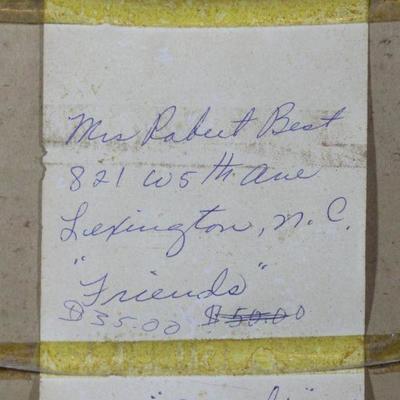 Mrs Robert Best
821 W 5th Ave
Lexington, N.C.
"Friends"
$35.00 $50.00